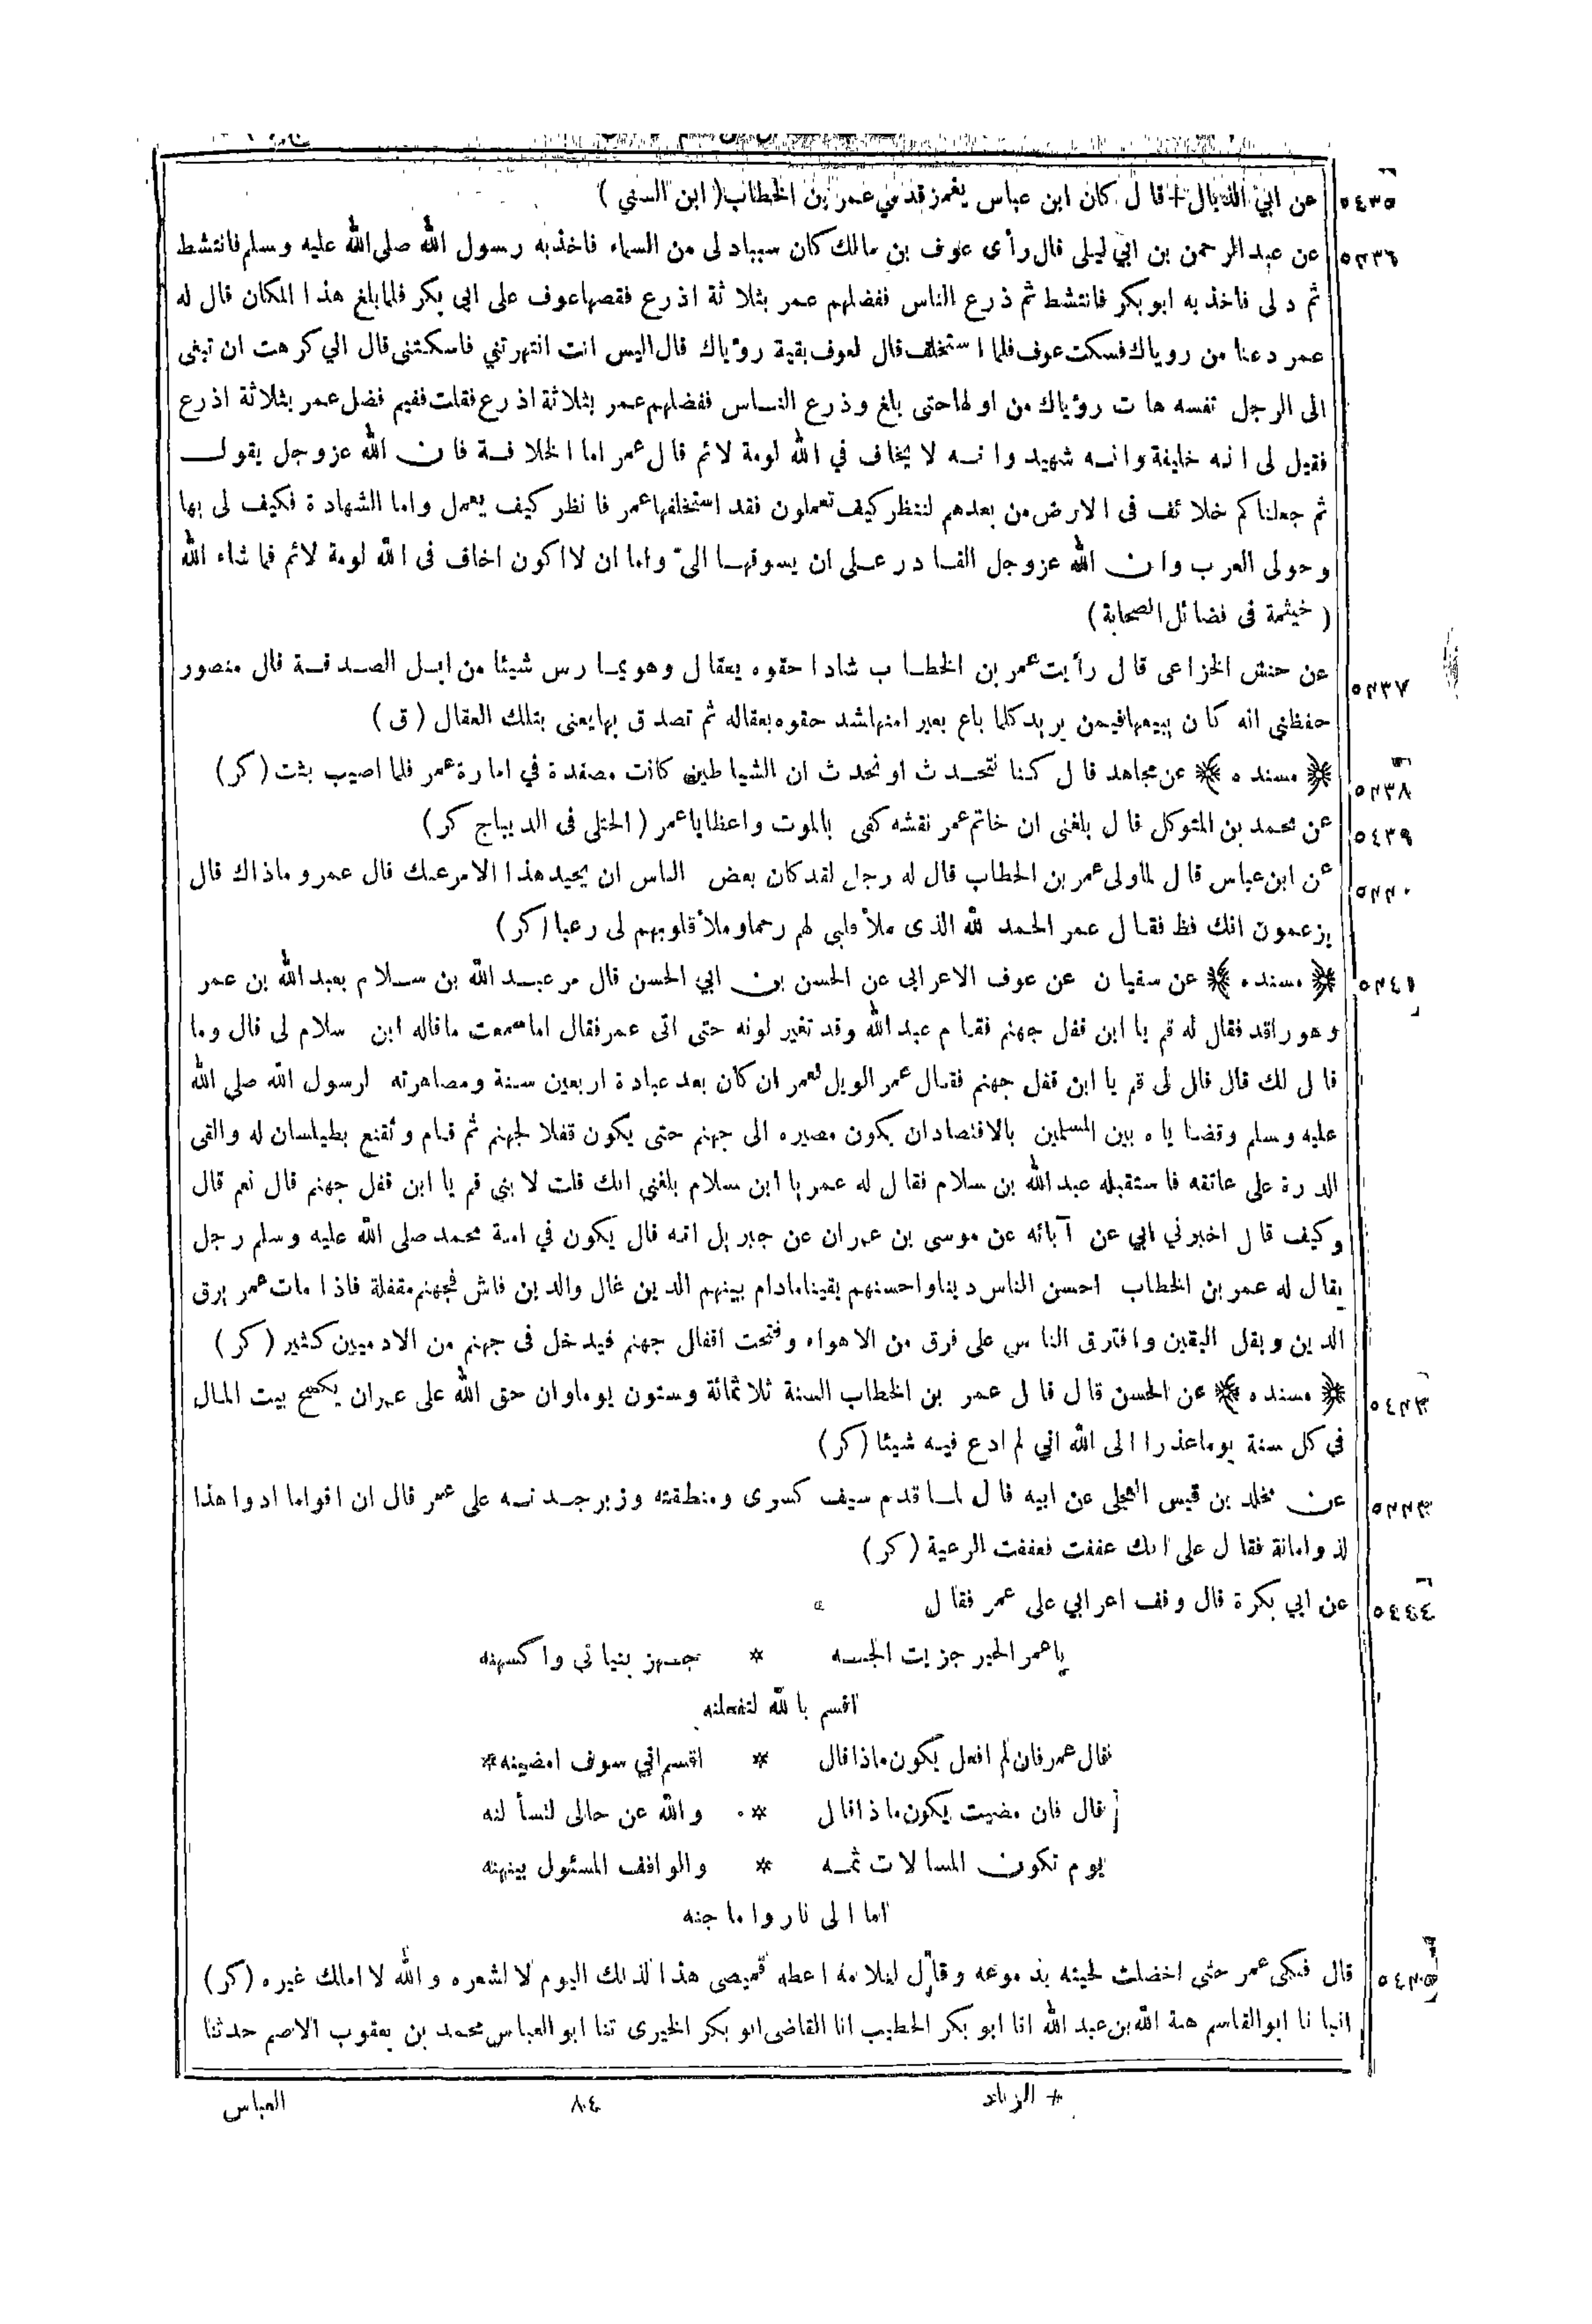 ٥٤٣٥ عن ابي الذيال + قال كان ابن عباس يغمز قدمي عمر بن الخطاب ( ابن السني )
٥٤٣٦ عن عبد الرحمن بن ابي ليلى قال رأى عوف بن مالك كان سببا دلى من السماء فاخذ به رسول الله صلى الله عليه وسلم فانتشط
ثم دلى فاخذ به ابو بكر فانتشط ثم ذرع الناس ففضلهم عمر بثلاثة اذرع فقصها عوف على ابى بكر فلما بلغ هذا المكان قال له
عمر دعنا من روياك فسكت عوف فلما استخلف قال لعوف بقية رؤياك قال اليس انت انتهرتني فاسكتنى قال الي كرهت ان تبغى
الى الرجل نفسه هات رؤياك من اولها حتى بلغ وذرع الناس ففضلهم عمر بثلاثة اذرع فقلت ففيم فضل عمر بثلاثة اذرع
فقيل لى انه خليفة وانه شهيد وانه لا يخاف في الله لومة لائم قال عمر اما الخلافة فان الله عزوجل يقول
ثم جعلناكم خلائف فى الارض من بعدهم لننظر كيف تعملون فقد استخلفها عمر فانظر كيف يعمل واما الشهادة فكيف لى بها
وحولى العرب وان الله عزوجل القادر على ان يسوقها الىّ واما ان لا اكون اخاف فى الله لومة لائم فما شاء الله
( خيثمة فى فضائل الصحابة )
٥٤٣٧ عن حنش الخزاعى قال رأيت عمر بن الخطاب شادا حقوه بعقال وهو يمارس شيئا من ابل الصدقة قال منصور
حفظني انه كان يبيعها فيمن يريد كلما باع بعيرا منها شد حقوه بعقاله ثم تصدق بها يعنى بتلك العقال ( ق )
٥٤٣٨ ﴿ مسنده ﴾ عن مجاهد قال كنا نتحدث او نحدث ان الشياطين كانت مصفدة في امارة عمر فلما اصيب بثت ( كر )
٥٤٣٩ عن محمد بن المتوكل قال بلغنى ان خاتم عمر نقشه كفى بالموت واعظا يا عمر ( الختلى فى الديباج كر )
٥٤٤٠ عن ابن عباس قال لما ولى عمر بن الخطاب قال له رجل لقد كان بعض الناس ان يحيد هذا الامر عنك قال عمر وما ذاك قال
يزعمون انك فظ فقال عمر الحمد لله الذى ملأ قلبى لهم رحما وملأ قلوبهم لى رعبا ( كر )
٥٤٤١ ﴿ مسنده ﴾ عن سفيان عن عوف الاعرابى عن الحسن بن ابي الحسن قال مر عبد الله بن سلام بعبد الله بن عمر
وهو راقد فقال له قم يا ابن قفل جهنم فقام عبد الله وقد تغير لونه حتى اتى عمر فقال اما سمعت ما قاله ابن سلام لى قال وما
قال لك قال قال لى قم يا ابن قفل جهنم فقال عمر الويل لعمر ان كان بعد عبادة اربعين سنة ومصاهرته لرسول الله صلى الله
عليه وسلم وقضاياه بين المسلمين بالاقتصاد ان يكون مصيره الى جهنم حتى يكون قفلا لجهنم ثم قام وتقنع بطيلسان له والقى
الدرة على عاتقه فاستقبله عبد الله بن سلام فقال له عمر يا ابن سلام بلغني انك قلت لابنى قم يا ابن قفل جهنم قال نعم قال
وكيف قال اخبرني ابي عن آبائه عن موسى بن عمران عن جبريل انه قال يكون في امة محمد صلى الله عليه وسلم رجل
يقال له عمر بن الخطاب احسن الناس دينا واحسنهم يقينا مادام بينهم الدين غال والدين فاش فجهنم مقفلة فاذا مات عمر يرق
الدين ويقل اليقين وافترق الناس على فرق من الاهواء وفتحت اقفال جهنم فيدخل فى جهنم من الادميين كثير ( كر )
٥٤٤٢ ﴿ مسنده ﴾ عن الحسن قال قال عمر بن الخطاب السنة ثلاثمائة وستون يوما وان حق الله على عمر ان يكسح بيت المال
في كل سنة يوما عذرا الى الله اني لم ادع فيه شيئا ( كر )
٥٤٤٣ عن مخلد بن قيس العجلى عن ابيه قال لما قدم سيف كسرى ومنطقته وزبرجدته على عمر قال ان اقواما ادوا هذا
لذووامانة فقال على انك عففت فعففت الرعية ( كر )
٥٤٤٤ عن ابي بكرة قال وقف اعرابي على عمر فقال
يا عمر الخير جزيت الجنه * جهز بنياتى واكسهنه
اقسم بالله لتفعلنه
فقال عمر فان لم افعل يكون ماذا قال * اقسم اني سوف امضينه *
قال فان مضيت يكون ماذا قال * والله عن حالى لتسألنه
يوم تكون المسالات ثمه * والواقف المسئول بينهنه
اما الى نار واما جنه
قال فبكى عمر حتى اخضلت لحيته بدموعه وقال لغلامه اعطه قميصى هذا لذلك اليوم لا لشعره والله لا املك غيره ( كر )
٥٤٤٥ انبانا ابو القاسم هبة الله بن عبد الله انا ابو بكر الخطيب انا القاضى ابو بكر الحيرى ثنا ابو العباس محمد بن يعقوب الاصم حدثنا
* الزناد ٨٠٤ العباس